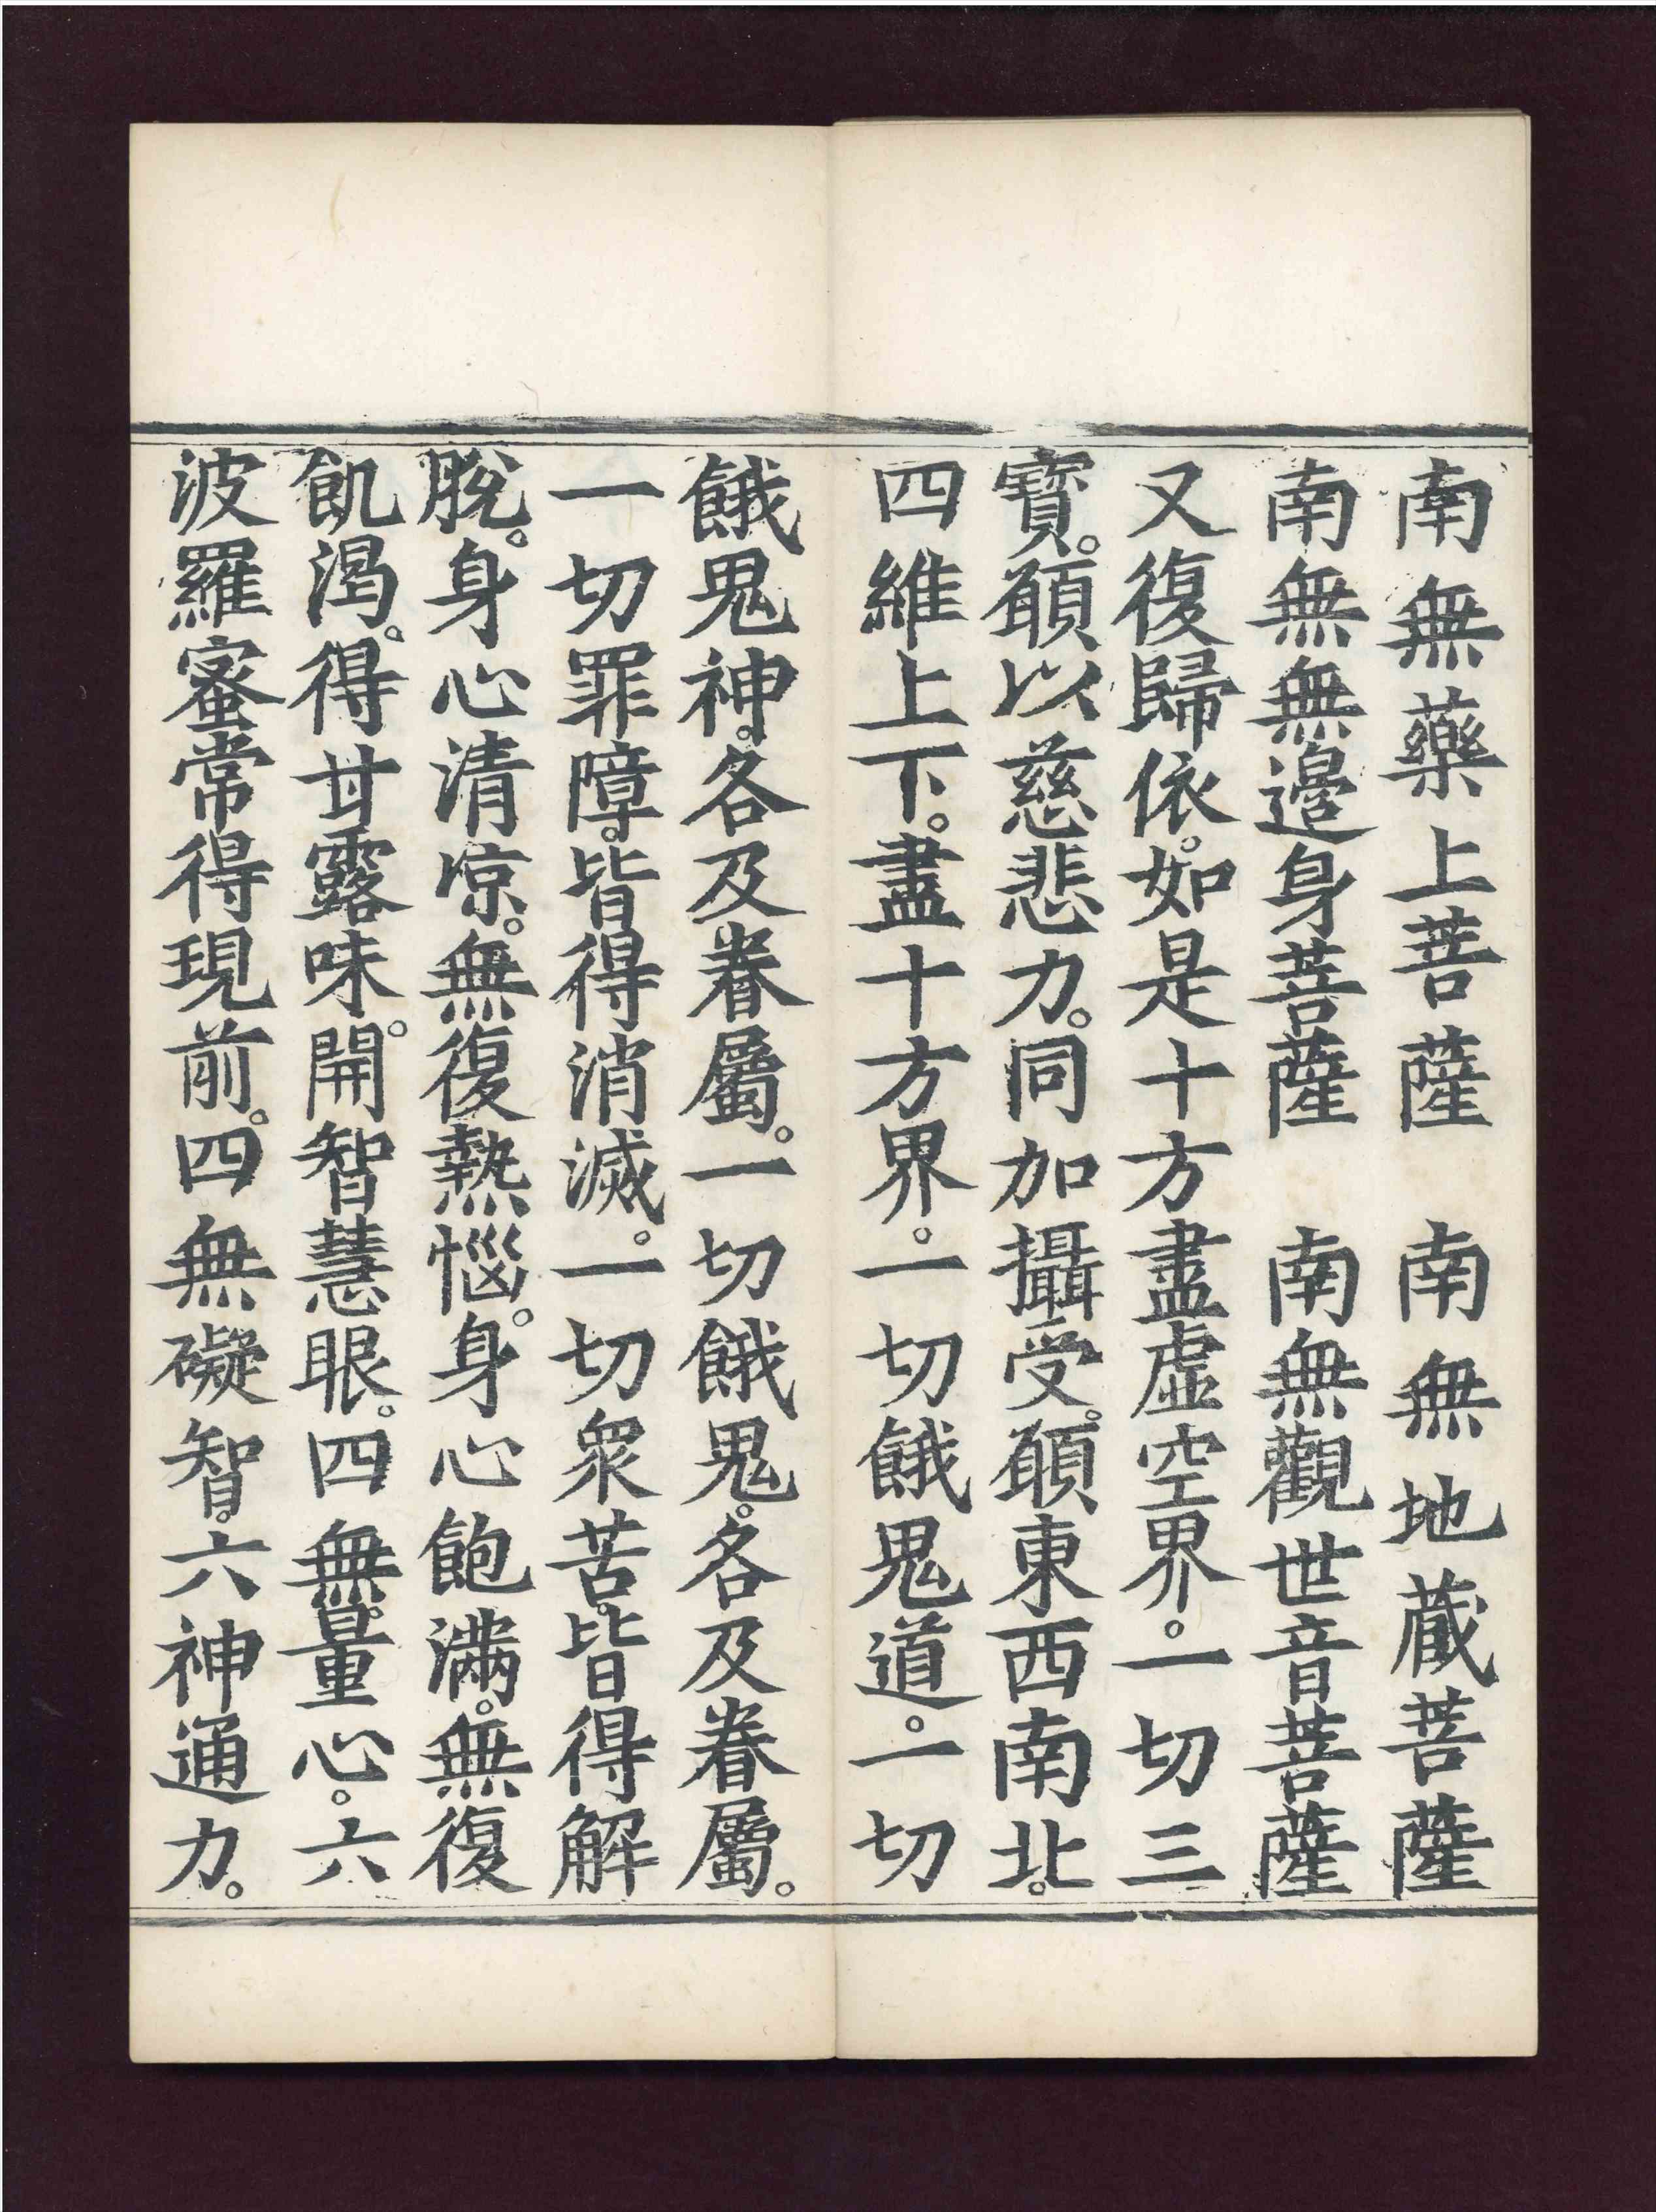 南無藥上菩薩　南無地藏菩薩
南無無邊身菩薩　南無觀世音菩薩
又復歸依。如是十方盡虛空界。一切三
寶。願以慈悲力。同加攝受。願東西南北。
四維上下。盡十方界。一切餓鬼道。一切
餓鬼神。各及眷屬。一切餓鬼。各及眷屬。
一切罪障。皆得消滅。一切眾苦。皆得解
脫。身心清凉。無復熱惱。身心飽滿。無復
飢渴。得甘露味。開智慧眼。四無量心。六
波羅蜜常得現前。四無礙智。六神通力。